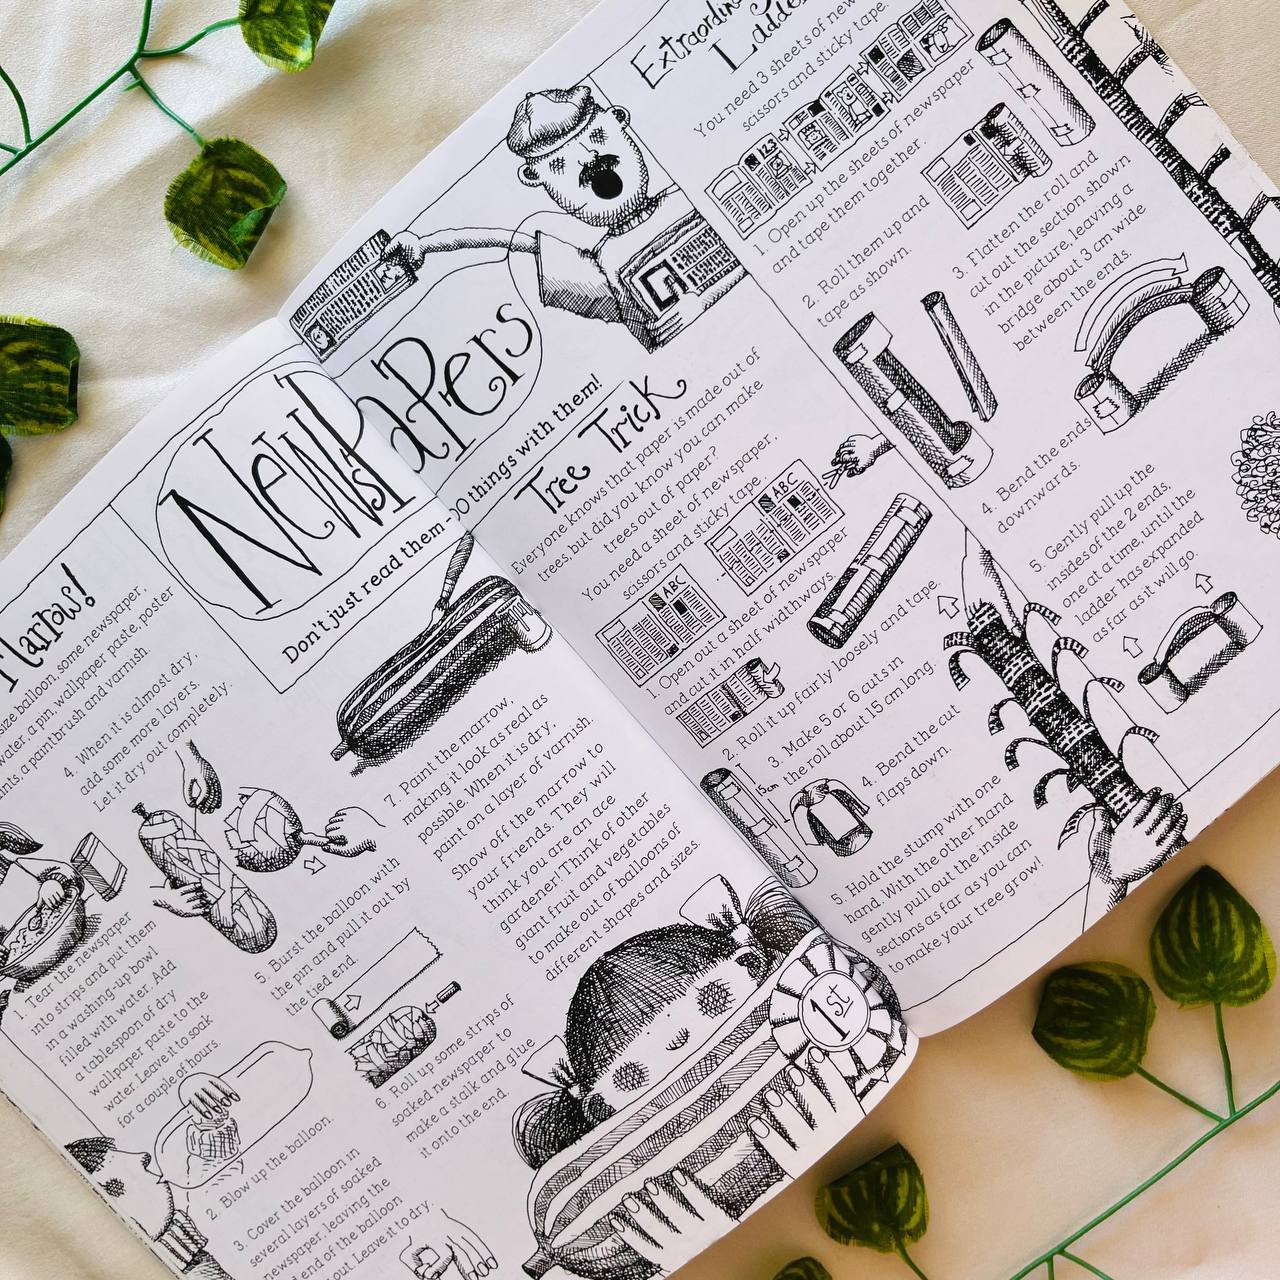 NewsPaPers
Don't just read them - DO things with them!
Marrows!
ize balloon, some newspaper,
water, a pin, wallpaper paste, poster
ints a paintbrush and varnish.
1. Tear the newspaper
into strips and put them
in a washing-up bowl
filled with water. Add
a tablespoon of dry
wallpaper paste to the
water. Leave it to soak
for a couple of hours.
2. Blow up the balloon.
3. Cover the balloon in
several layers of soaked
newspaper, leaving the
end of the balloon
out. Leave it to dry.
4. When it is almost dry,
add some more layers.
Let it dry out completely.
5. Burst the balloon with
the pin and pull it out by
the tied end.
6. Roll up some strips of
soaked newspaper to
make a stalk and glue
it onto the end.
7. Paint the marrow,
making it look as real as
possible. When it is dry,
paint on a layer of varnish.
Show off the marrow to
your friends. They will
think you are an ace
gardener! Think of other
giant fruit and vegetables
to make out of balloons of
different shapes and sizes.
1st
Tree Trick
Everyone knows that paper is made out of
trees, but did you know you can make
trees out of paper?
You need a sheet of newspaper,
scissors and sticky tape.
ABC
ABC
1. Open out a sheet of newspaper
and cut it in half widthways.
2. Roll it up fairly loosely and tape.
3. Make 5 or 6 cuts in
the roll about 15 cm long.
15cm
4. Bend the cut
flaps down.
5. Hold the stump with one
hand. With the other hand
gently pull out the inside
sections as far as you can
to make your tree grow!
Extraordinary
Ladder
You need 3 sheets of new
scissors and sticky tape.
123
1. Open up the sheets of newspaper
and tape them together.
2. Roll them up and
tape as shown.
3. Flatten the roll and
cut out the section shown
in the picture, leaving a
bridge about 3 cm wide
between the ends.
4. Bend the ends
downwards.
5. Gently pull up the
insides of the 2 ends,
one at a time, until the
ladder has expanded
as far as it will go.